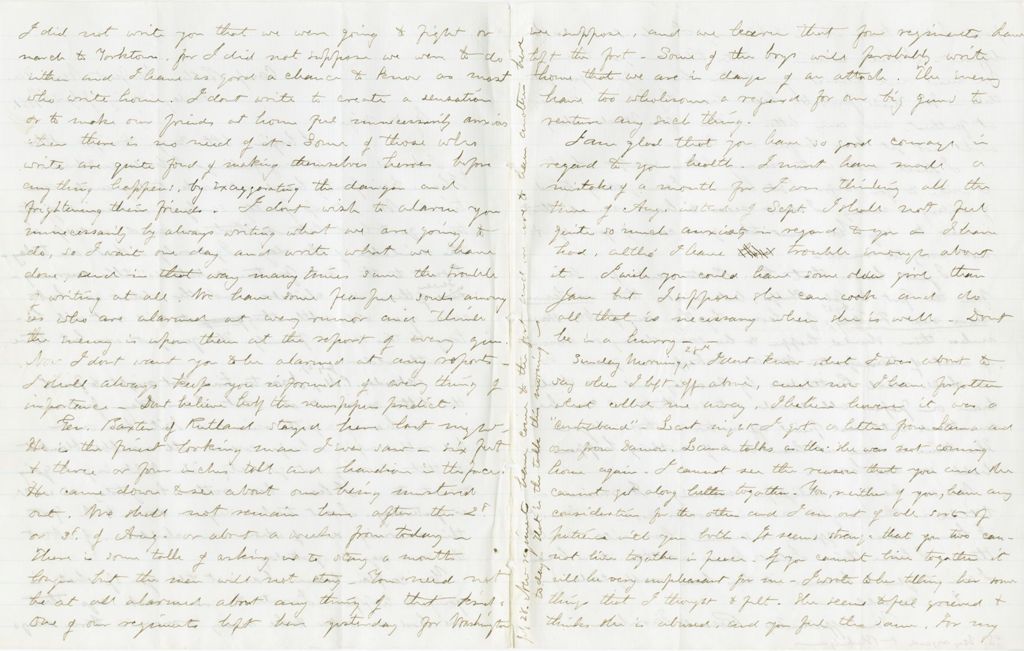 I did not write you that we were going to fight or
march to Yorktown, for I did not suppose we were to do
either and I have as good a chance to know as most
who write home. I dont write to create a sensation
or to make our friends at home feel unnecessarily anxious
when there is no need of it. Some of those who
write are quite fond of making themselves heroes before
any thing happens, by exaggerating the danger and
frightening their friends. I dont wish to alarm you
unnecessarily by always writing what we are going to
do, so I wait one day and write what we have
done, and in that way many times save the trouble
of writing at all. We have some fearful souls among
us who are alarmed at every rumor and think
the enemy is upon them at the report of every gun.
Now I dont want you to be alarmed at any reports
I shall always keep you informed of every thing of
importance - Dont believe half the newspapers predict.
Gen. Baxter of Rutland stayed here last night
He is the finest looking man I ever saw - six feet
& three or four inches tall and handsome in the face.
He came down to see about our being mustered
out. We shall not remain here after the 2d
or 3d. of Aug. or about a week from today -
There is some talk of asking us to stay a month
longer but the men will not stay - You need not
be at all alarmed about any thing of that kind.
One of our regiments left here yesterday for Washington
we suppose, and we learn that four regiments have
left the fort - Some of the boys will probably write
home that we are in danger of an attack. The enemy
have too wholesome a regard for our big guns to
venture any such thing.
I am glad that you have so good courage in
regard to your health. I must have made a
mistake of a month for I am thinking all the
time of Aug. instead of Sept. I shall not feel
quite so much anxiety in regard to you as I have
had, altho' I have trouble enough about
it - I wish you could have some older girl than
Jane but I suppose she can cook and do
all that is necessary when she is well - Dont
be in a hurry -
Sunday Morning, 28th I dont know what I was about to
say when I left off above, and now I have forgotten
what called me away. I believe however it was a
"contraband" - Last night I got a letter from Laura and
one from Laura talks as tho' she was not coming
home again. I cannot see the reason that you and she
cannot get along better together. You neither of you, have any
consideration for the other and I am out of all sort of
patience with you both - It seems strange that you two can-
not live together in peace. If you cannot live together it
will be very unpleasant for me - I wrote to be telling her some
things that I thought & felt. She seems to feel grieved &
thinks she is abused, and you feel the same. For my
regiments have come to the fort and we are to have another here
today, that is the talk this morning